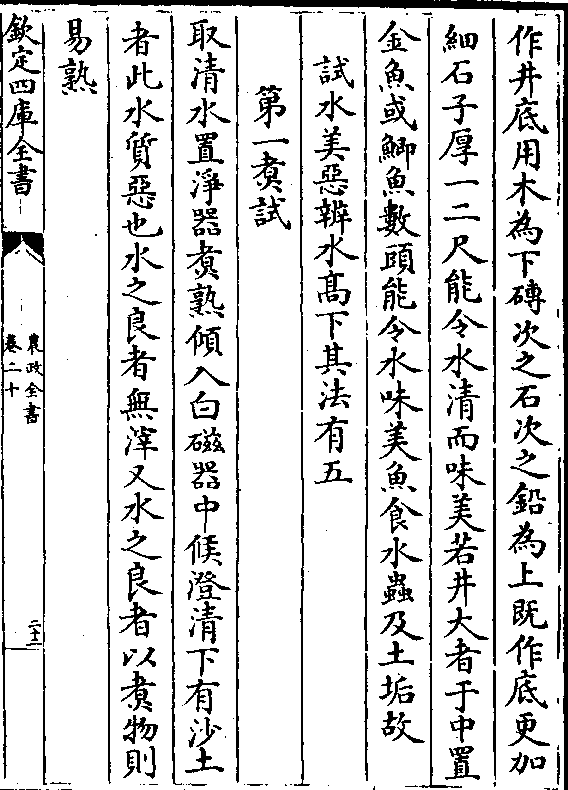 作井底用木為下磚次之石次之鉛為上既作底更加
細石子厚一二尺能令水清而味美若井大者于中置
金魚或鯽魚數頭能令水味美魚食水蟲及土垢故
試水美惡辨水髙下其法有五
第一煑試
取清水置淨器煑熟傾入白磁器中候澄清下有沙土
者此水質惡也水之良者無滓又水之良者以煑物則
易熟
欽定四庫全書
農政全書
卷二十
二十二